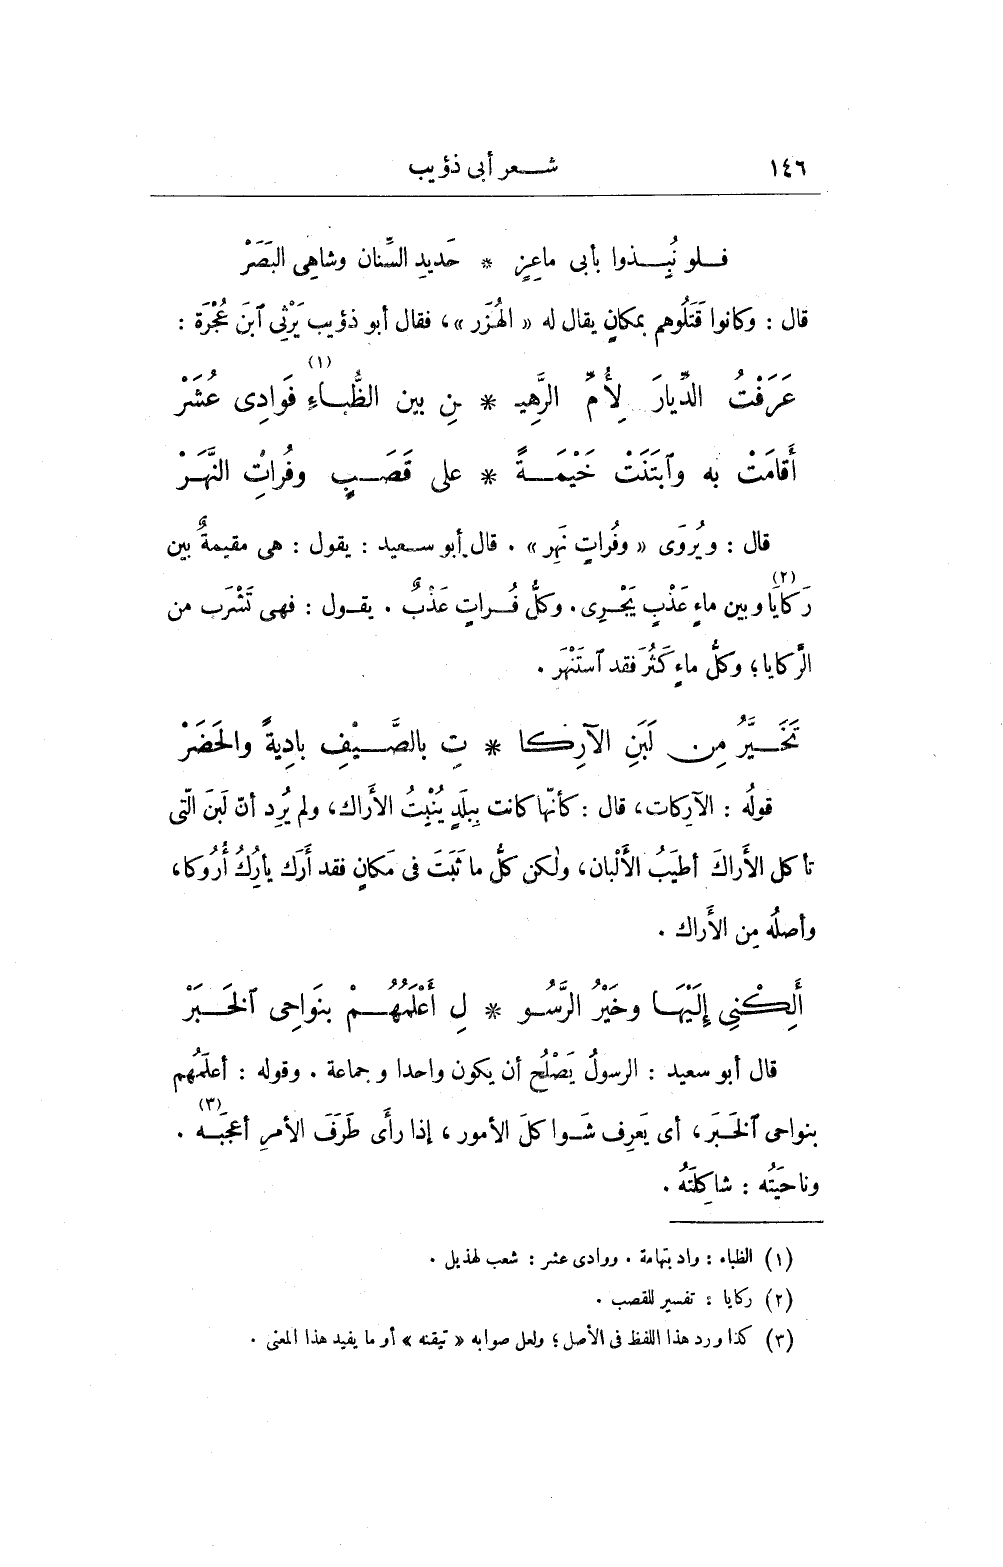 ١٤٦ شعر أبى ذؤيب
فلو نُبِذوا بأبى ماعِزٍ * حَديدِ السِّنان وشاهِى البَصَرْ
قال : وكانوا قَتَلُوهم بمكانٍ يقال له « الهُزَر » ، فقال أبو ذؤيب يَرْثِى ٱبنَ عُجْرَة :
عَرَفْتُ الدِّيارَ لِأُمِّ الرَّهِيـ * ـنِ بين الظُّباءِ (١) فَوَادِى عُشَرْ
أَقامَتْ به وٱبتَنَتْ خَيْمَةً * على قَصَبٍ وفُراتِ النَّهَرْ
قال : ويُروَى « وفُراتٍ نَهِر » . قال أبو سعيد : يقول : هى مقيمةٌ بين
رَكايَا (٢) وبين ماءٍ عَذْبٍ يَجْرِى . وكلُّ فُراتٍ عَذْبٌ . يقول : فهى تَشْرَب من
الرَّكايا ؛ وكلُّ ماءٍ كَثُرَ فقد ٱستَنْهَرَ .
تَخَيَّرُ مِن لَبَنِ الآرِكا * تِ بالصَّيْفِ بادِيةً والحَضَرْ
قولُه : الآرِكات ، قال : كأنّها كانت بِبلَدٍ يُنْبِتُ الأَراكَ ، ولم يُرِد أنّ لَبنَ الّتى
تأكل الأَراكَ أطيَبُ الأَلْبان ، ولٰكن كلُّ ما ثَبَتَ فى مَكانٍ فقد أَرَك يأرُكُ أُرُوكا ،
وأصلُه مِن الأَراك .
أَلِكْنِى إِلَيْها وخَيْرُ الرَّسُو * لِ أَعْلَمُهُمْ بنَواحِى ٱلخَبَرْ
قال أبو سعيد : الرسولُ يَصْلُح أن يكون واحدا وجماعة . وقوله : أعلَمُهم
بنواحى ٱلخَبَر ، أى يَعرِف شَوا كلَ الأمور ، إذا رأَى طَرَفَ الأمرِ أعجَبَه (٣) .
وناحيَتُه : شاكِلَتُهُ .
(١) الظباء : واد بتهامة . ووادى عشر : شعب لهذيل .
(٢) ركايا : تفسير للقصب .
(٣) كذا ورد هذا اللفظ فى الأصل ؛ ولعل صوابه « تيقنه » أو ما يفيد هذا المعنى .